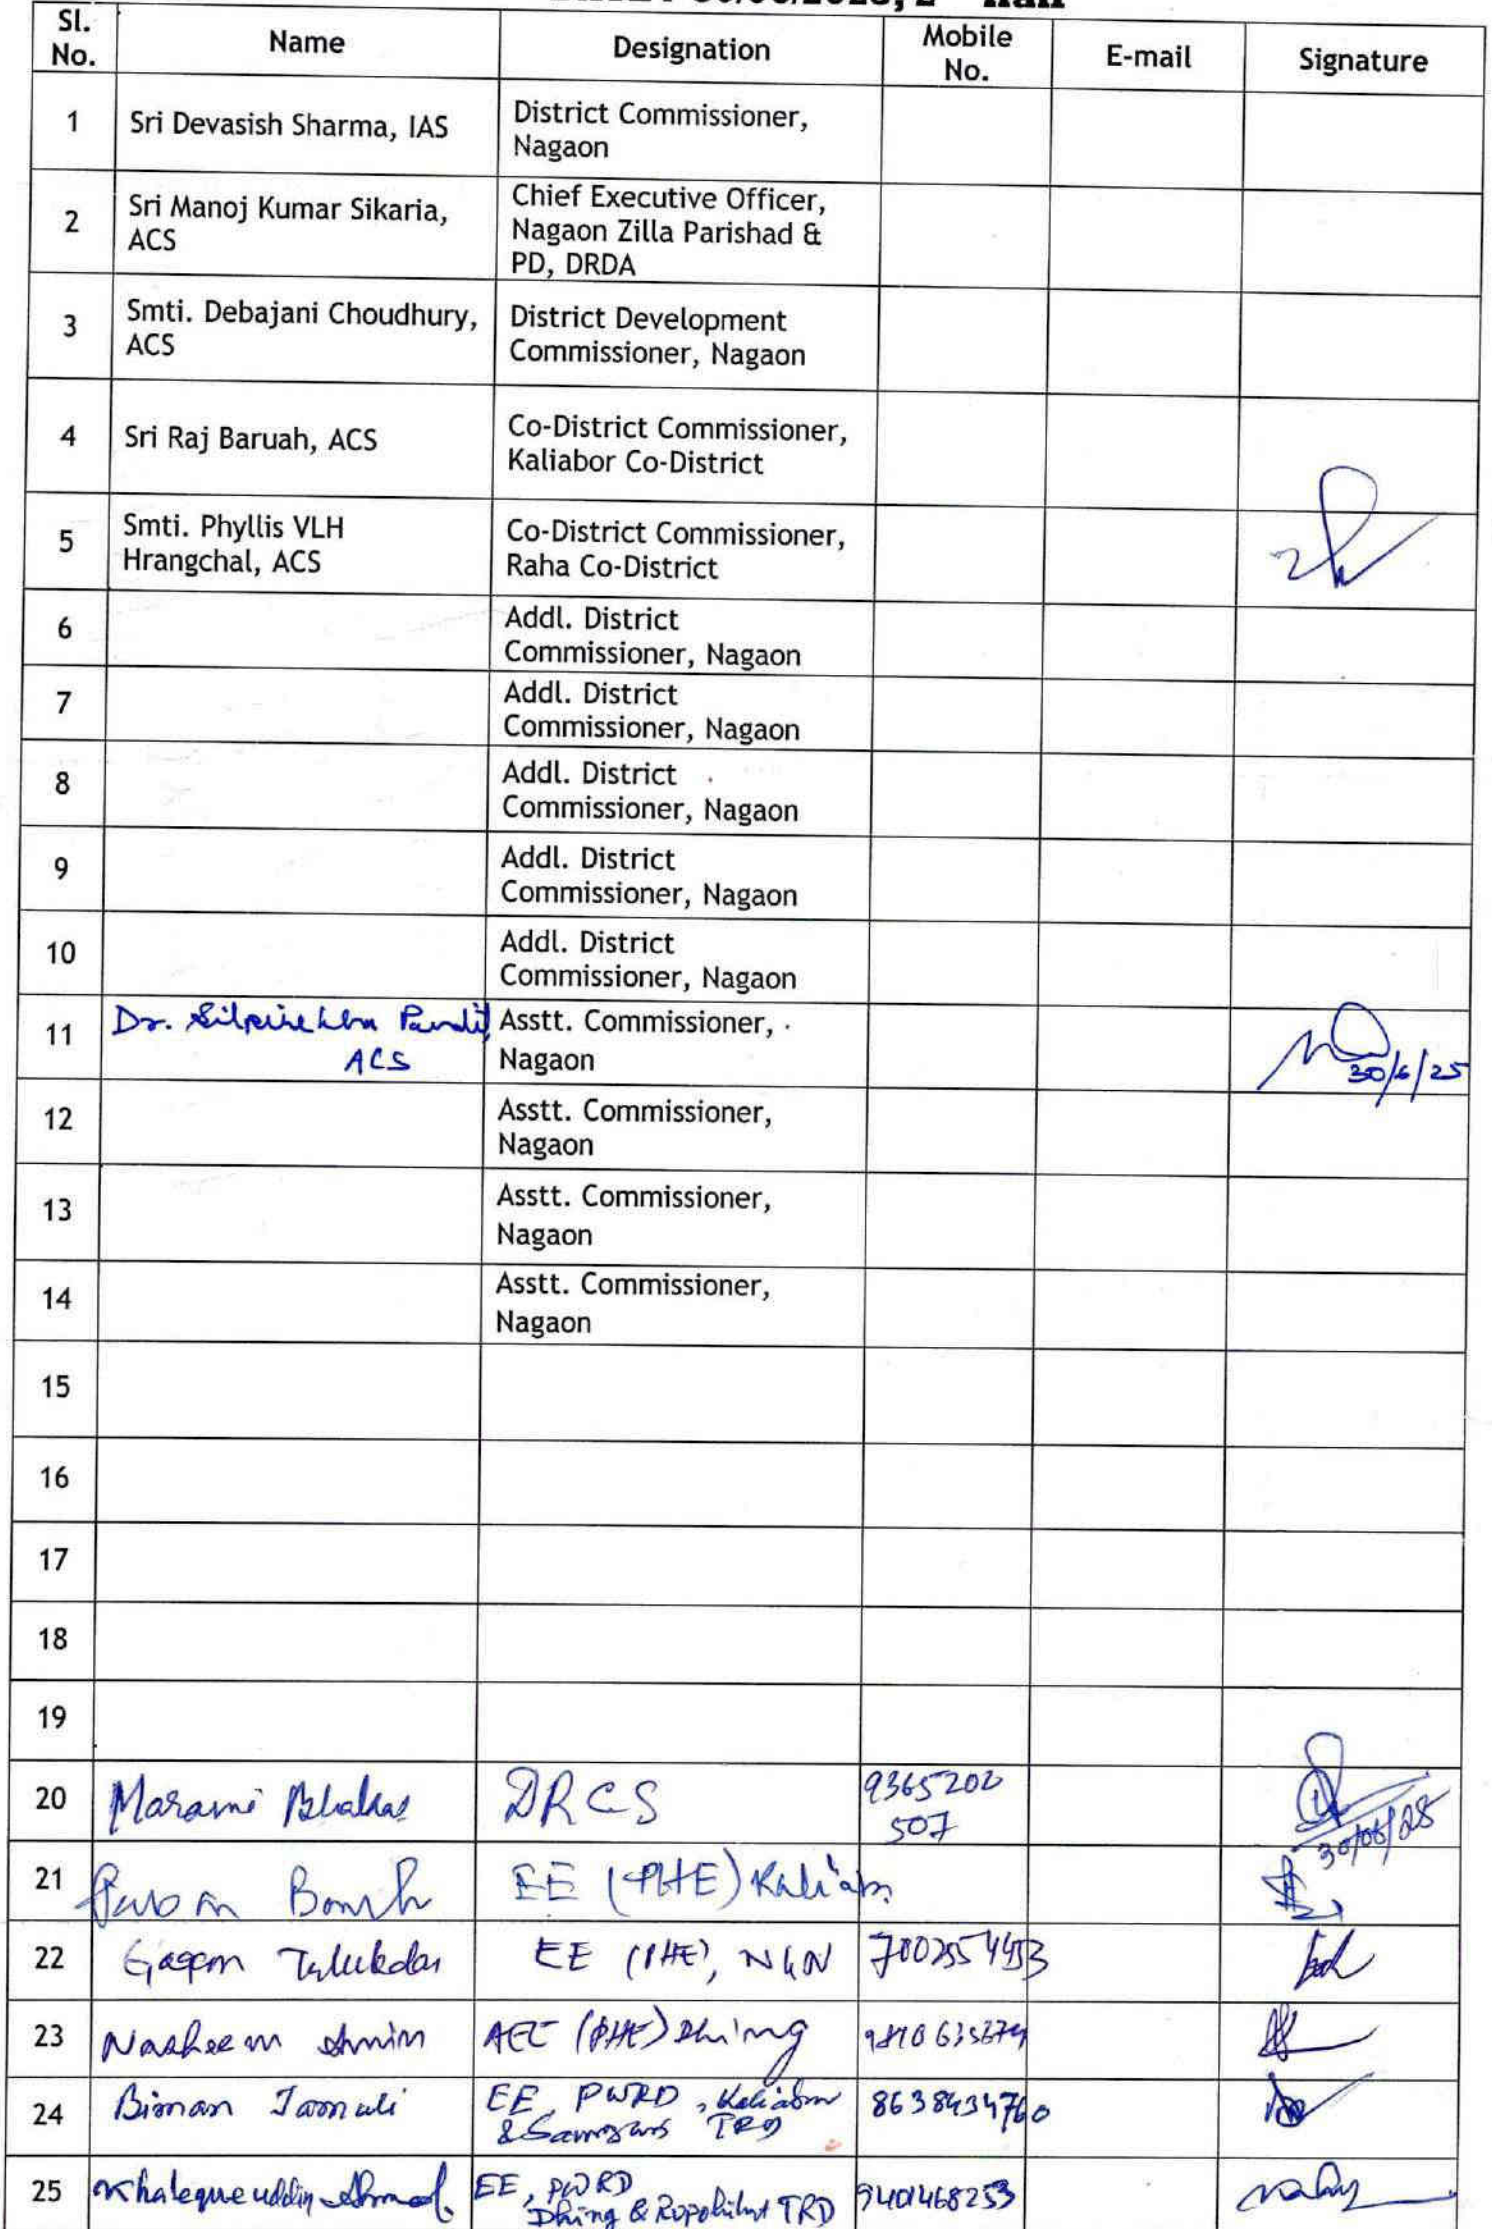 Sl. No. Name Designation Mobile No. E-mail Signature
1 Sri Devasish Sharma, IAS District Commissioner, Nagaon
2 Sri Manoj Kumar Sikaria, ACS Chief Executive Officer, Nagaon Zilla Parishad & PD, DRDA
3 Smti. Debajani Choudhury, ACS District Development Commissioner, Nagaon
4 Sri Raj Baruah, ACS Co-District Commissioner, Kaliabor Co-District
5 Smti. Phyllis VLH Hrangchal, ACS Co-District Commissioner, Raha Co-District
6 Addl. District Commissioner, Nagaon
7 Addl. District Commissioner, Nagaon
8 Addl. District Commissioner, Nagaon
9 Addl. District Commissioner, Nagaon
10 Addl. District Commissioner, Nagaon
11 Dr. Pandit, ACS Asstt. Commissioner, Nagaon 30/6/25
12 Asstt. Commissioner, Nagaon
13 Asstt. Commissioner, Nagaon
14 Asstt. Commissioner, Nagaon
15
16
17
18
19
20 Marami DRCS 9365202 507 30/06/25
21 EE (PHE)
22 Gagan Talukdar EE (PHE), NGN
23 Nasheem Amin AEE (PHE) Dhing
24 Biman Tamuli EE, PWRD, Kaliabor & TRD 8638434760
25 Khalequeuddin Ahmed. EE, PWRD Dhing & Rupohihat TRD 9401468253